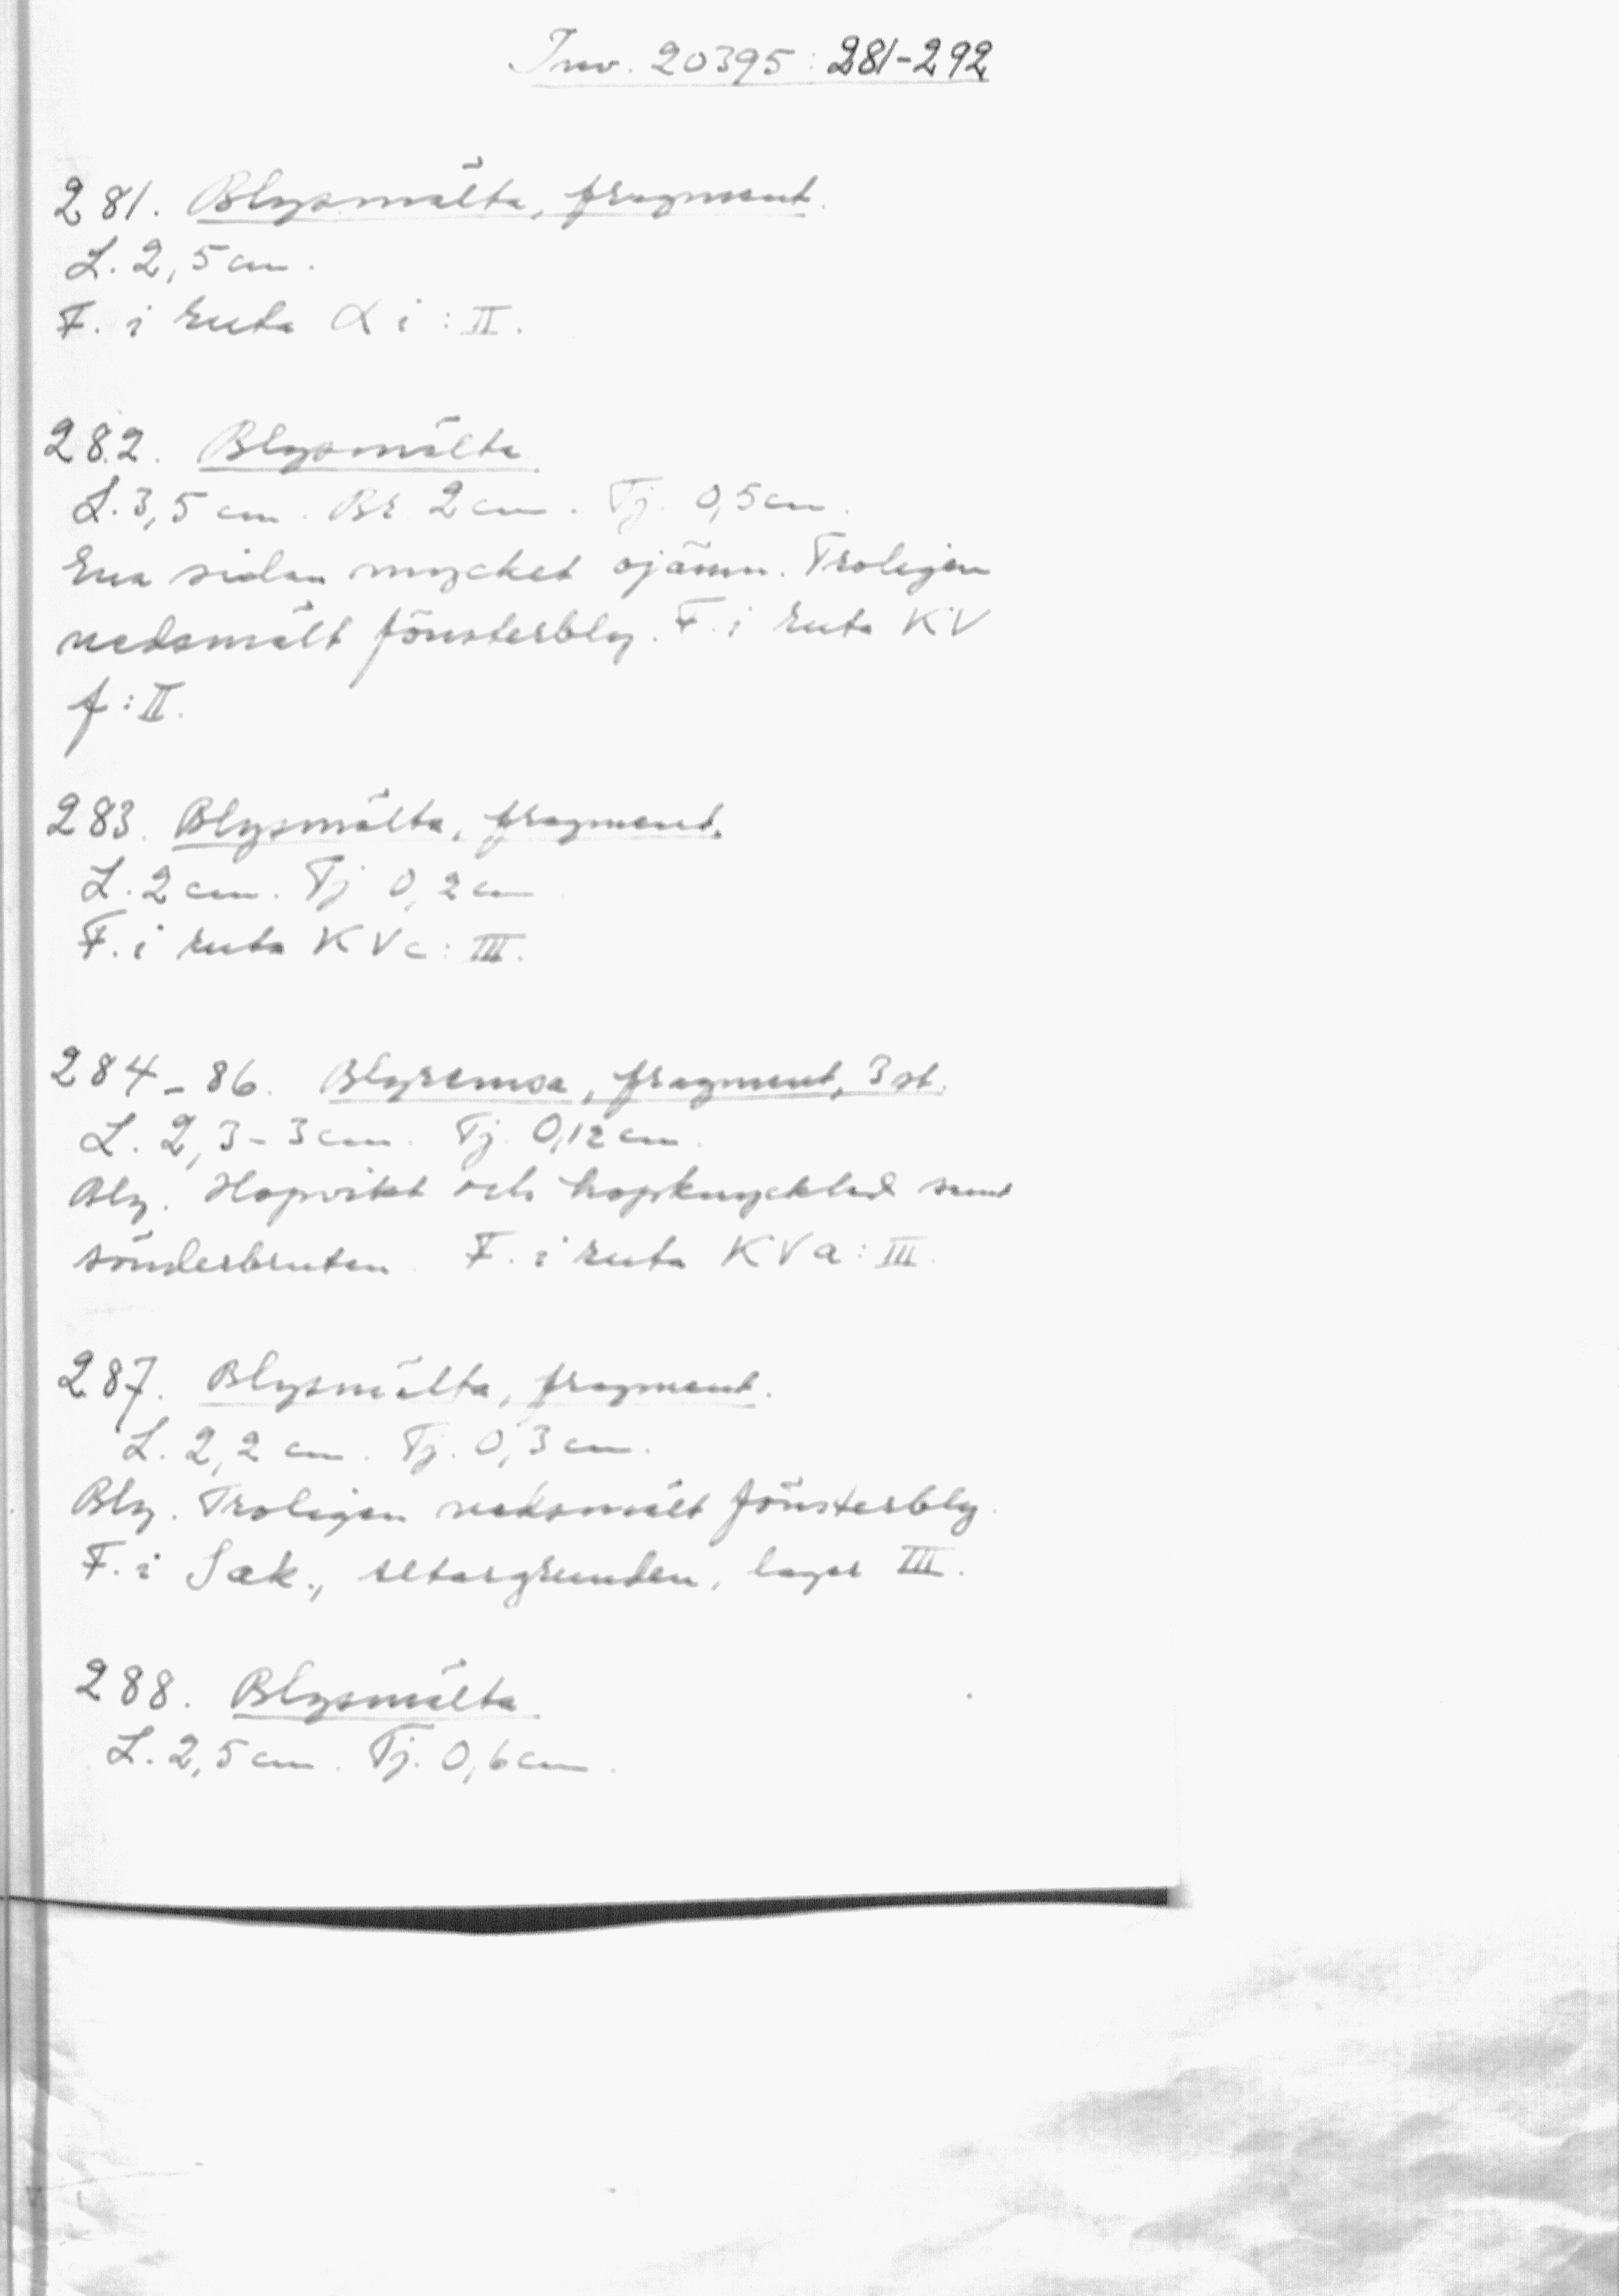 Inv. 20395: 281-292
281. Blysmälta, fragment.
L. 2,5 cm.
F. i ruta α i : II.
282. Blysmälta
L. 3,5 cm. Br. 2 cm. Tj. 0,5 cm.
Ena sidan mycket ojämn. Troligen
nedsmält fönsterbly. F. i ruta KV
f : II.
283. Blysmälta, fragment.
L. 2 cm. Tj 0,2 cm
F. i ruta KVc : III.
284-86. Blyremsa, fragment, 3 st.
L. 2,3-3 cm. Tj. 0,12 cm.
Bly. Hopvikt och hopknycklad samt
sönderbruten. F. i ruta KVa : III.
287. Blysmälta, fragment.
L. 2,2 cm. Tj. 0,3 cm.
Bly. Troligen nedsmält fönsterbly.
F. i Sak., altargrunden, lager III.
288. Blysmälta
L. 2,5 cm. Tj. 0,6 cm.